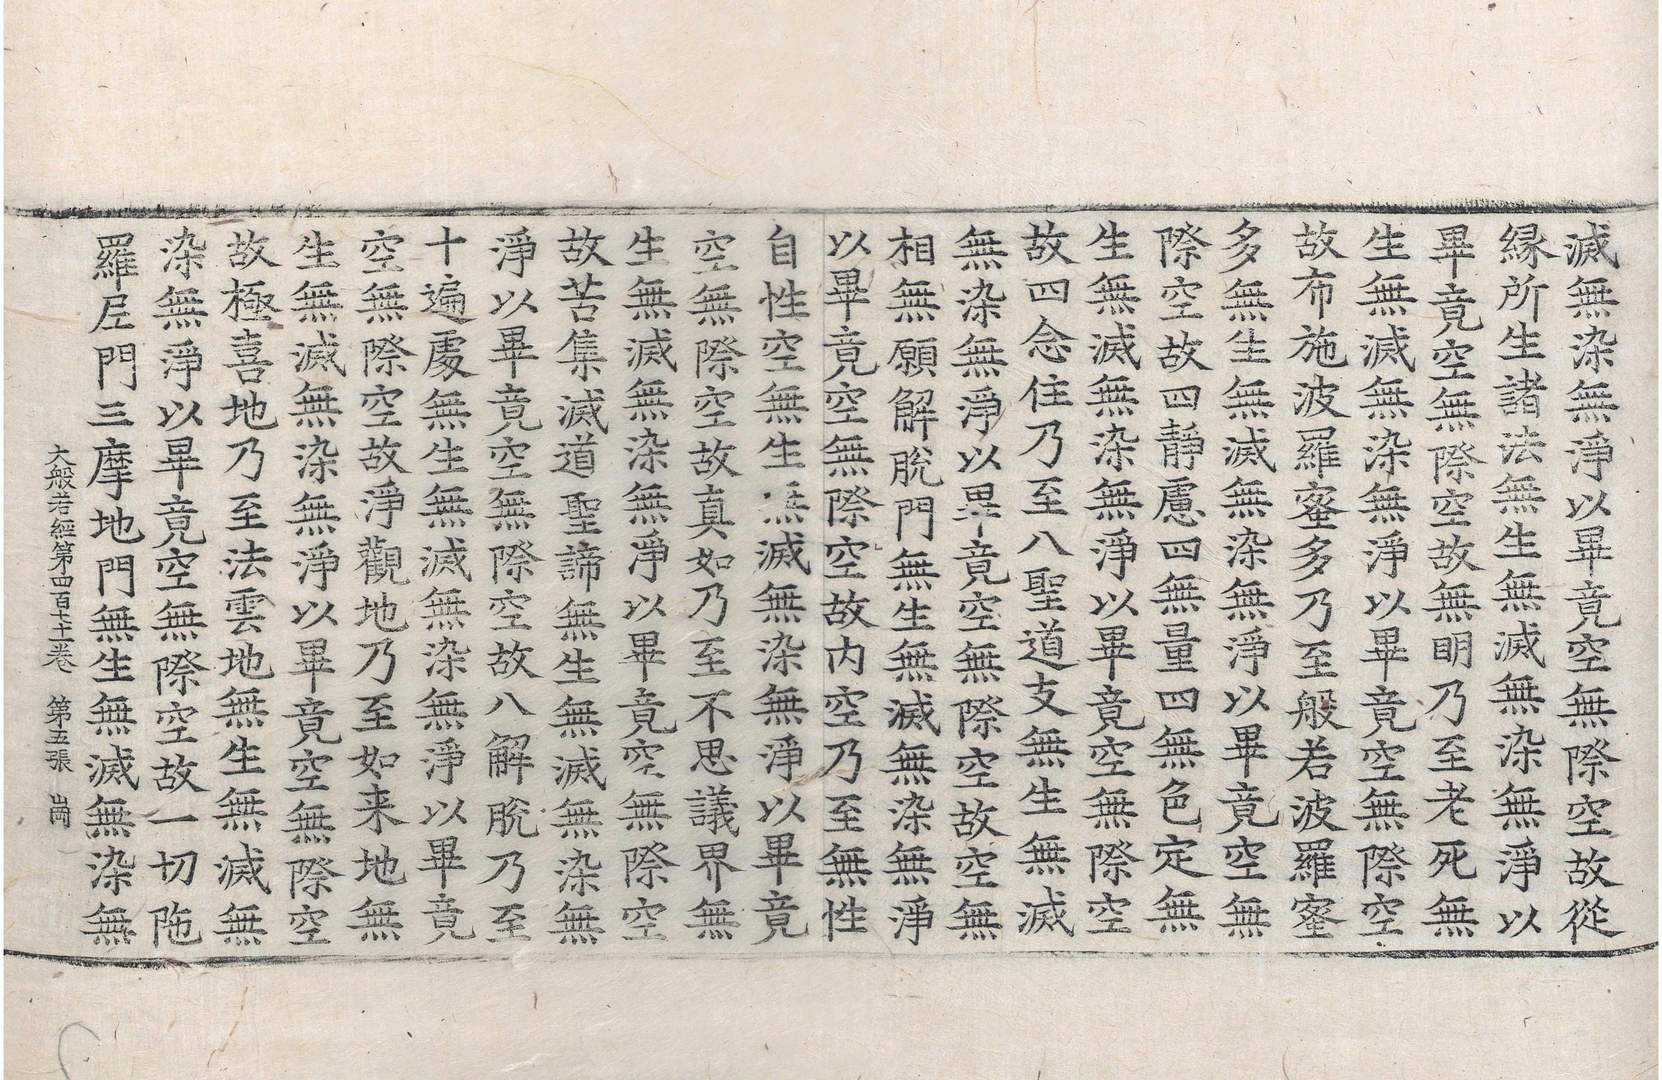 滅無染無淨以畢竟空無際空故從
緣所生諸法無生無滅無染無淨以
畢竟空無際空故無明乃至老死無
生無滅無染無淨以畢竟空無際空
故布施波羅蜜多乃至般若波羅蜜
多無生無滅無染無淨以畢竟空無
際空故四靜慮四無量四無色定無
生無滅無染無淨以畢竟空無際空
故四念住乃至八聖道支無生無滅
無染無淨以畢竟空無際空故空無
相無願解脫門無生無滅無染無淨
以畢竟空無際空故内空乃至無性
自性空無生無滅無染無淨以畢竟
空無際空故真如乃至不思議界無
生無滅無染無淨以畢竟空無際空
故苦集滅道聖諦無生無滅無染無
淨以畢竟空無際空故八解脫乃至
十遍處無生無滅無染無淨以畢竟
空無際空故淨觀地乃至如来地無
生無滅無染無淨以畢竟空無際空
故極喜地乃至法雲地無生無滅無
染無淨以畢竟空無際空故一切陁
羅尼門三摩地門無生無滅無染無
大般若經第四百七十一卷　第五張　崗